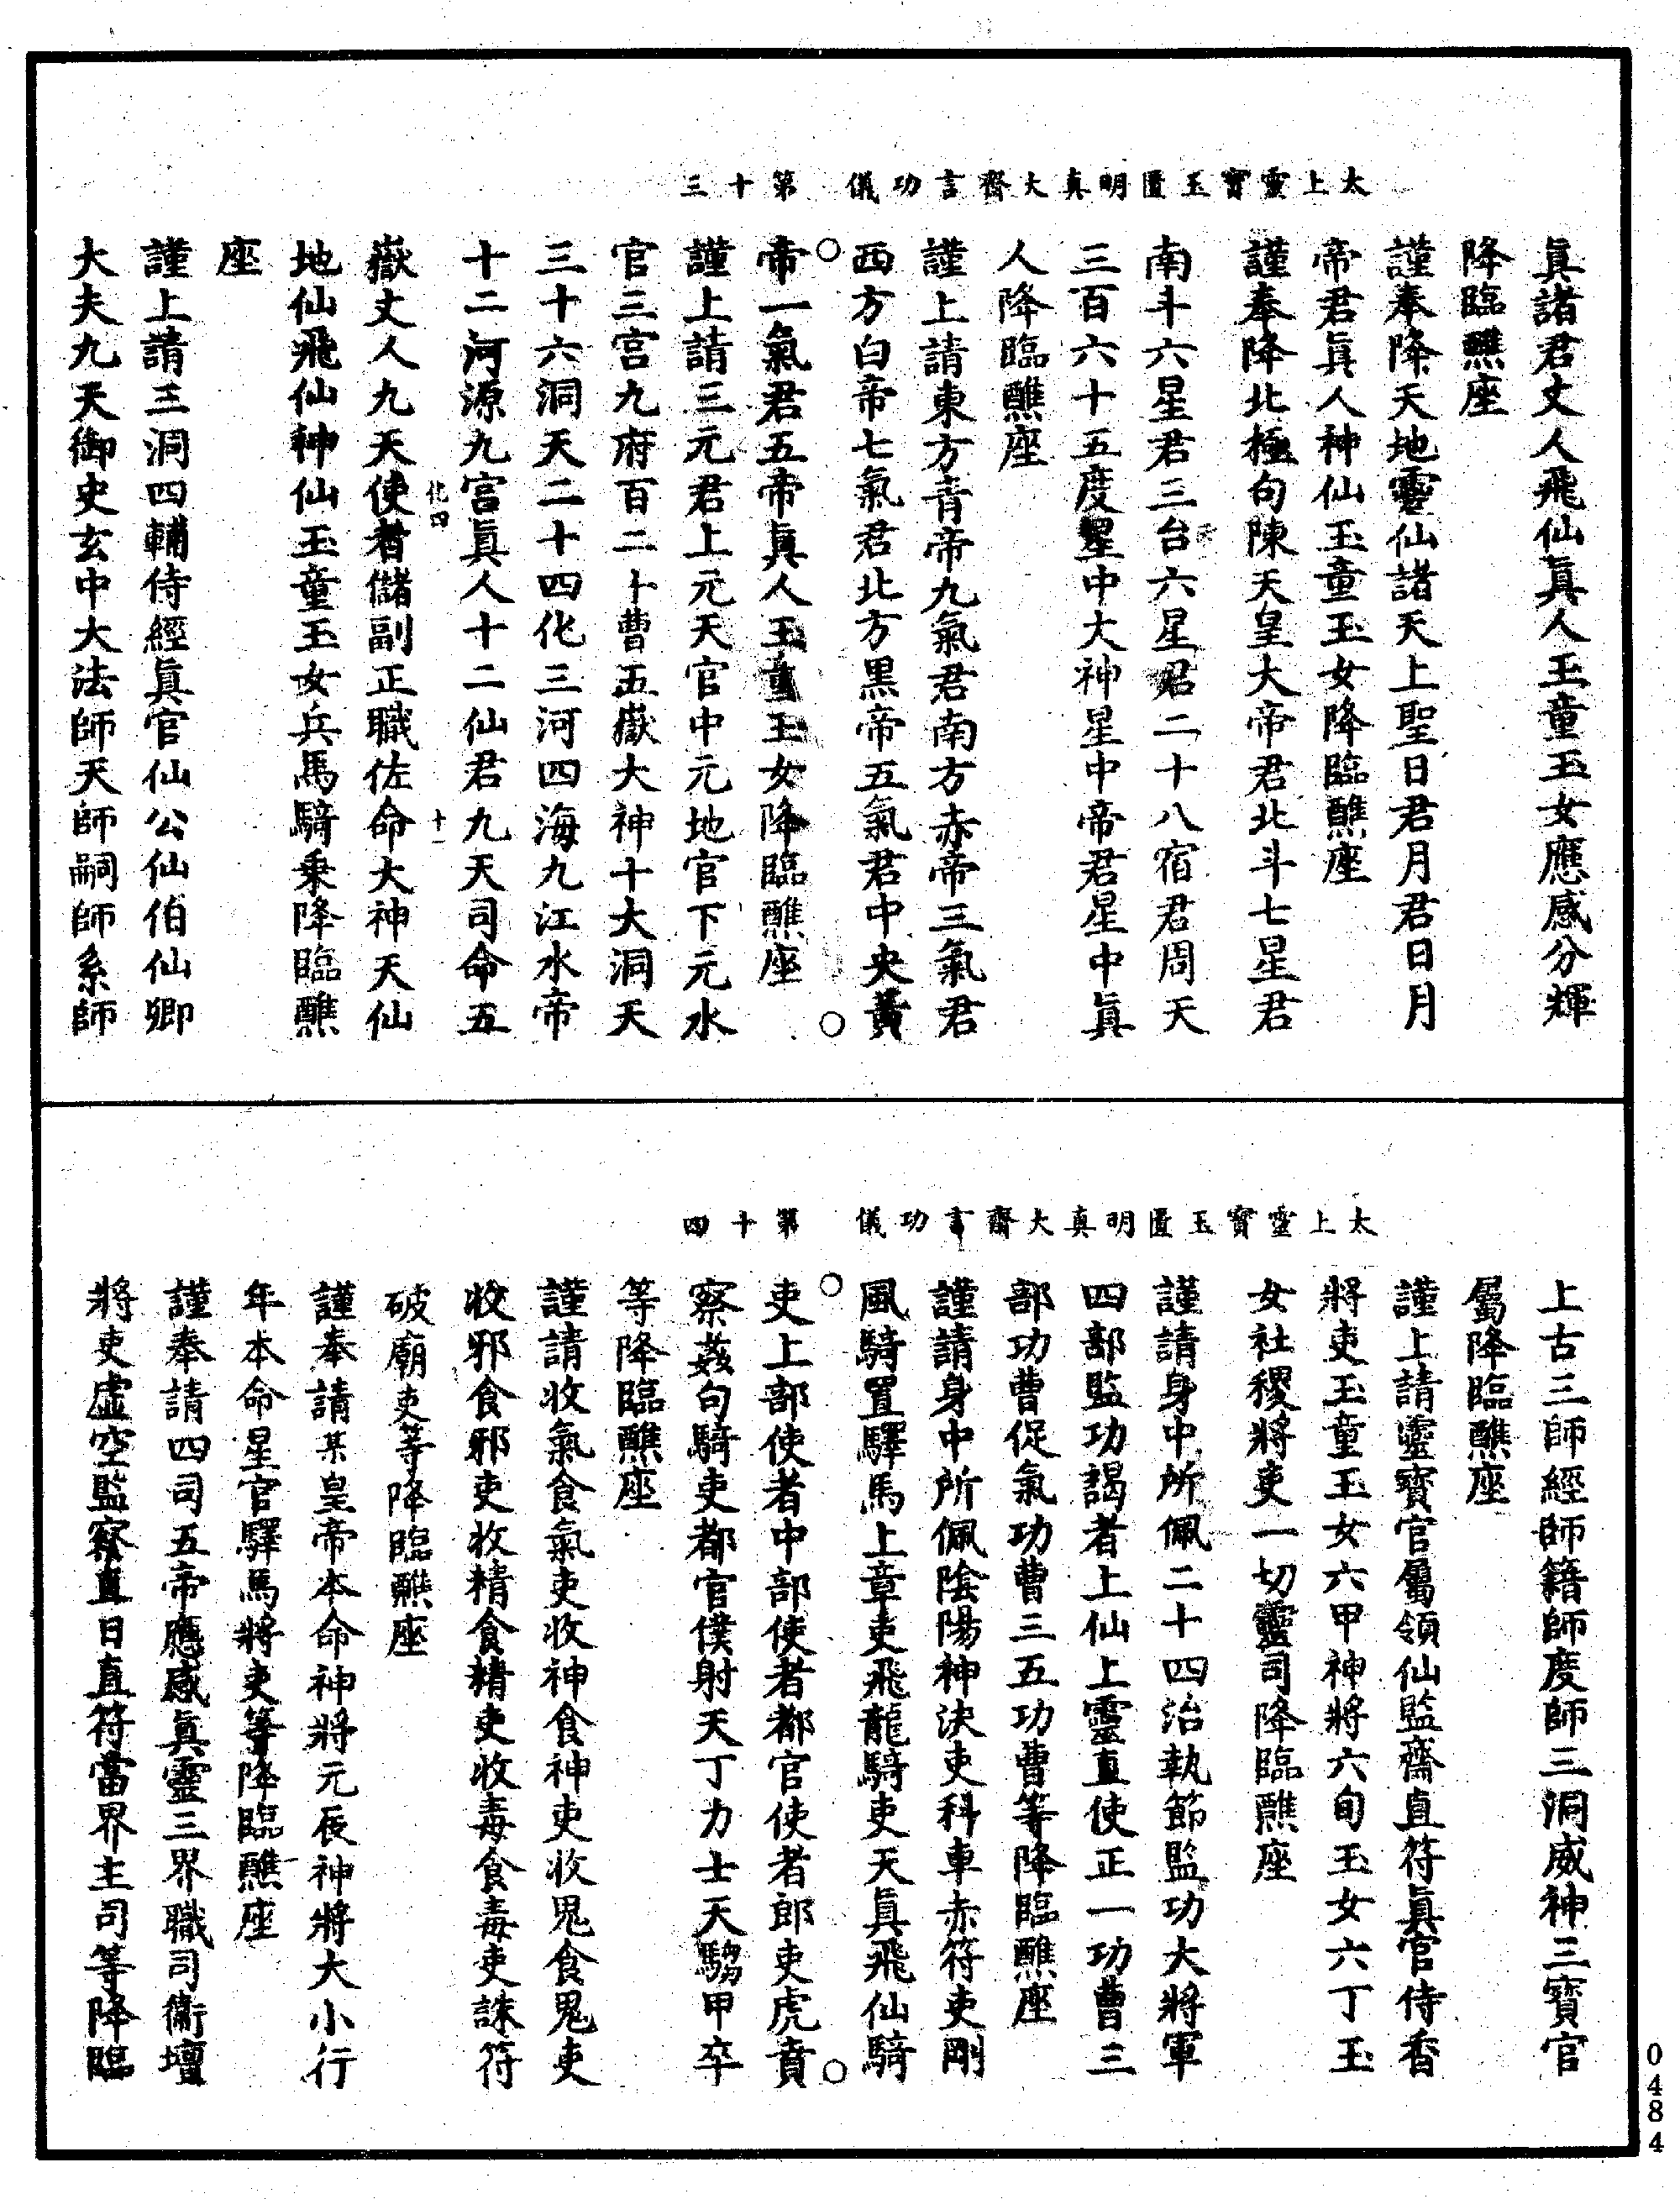 太上靈寶玉匱明真大齋言功儀　第十三
真諸君丈人飛仙真人玉童玉女應感分輝
降臨醮座
謹奉降天地靈仙諸天上聖日君月君日月
帝君真人神仙玉童玉女降臨醮座
謹奉降北極句陳天皇大帝君北斗七星君
南斗六星君三台六星君二十八宿君周天
三百六十五度星中大神星中帝君星中真
人降臨醮座
謹上請東方青帝九氣君南方赤帝三氣君
西方白帝七氣君北方黑帝五氣君中央黃
帝一氣君五帝真人玉童玉女降臨醮座
謹上請三元君上元天官中元地官下元水
官三宮九府百二十曹五嶽大神十大洞天
三十六洞天二十四化三河四海九江水帝
十二河源九宮真人十二仙君九天司命五
化四　十一
嶽丈人九天使者儲副正職佐命大神天仙
地仙飛仙神仙玉童玉女兵馬騎乗降臨醮
座
謹上請三洞四輔侍經真官仙公仙伯仙卿
大夫九天御史玄中大法師天師嗣師系師
太上靈寶玉匱明真大齋言功儀　第十四
上古三師經師籍師度師三洞威神三寳官
屬降臨醮座
謹上請靈寳官屬領仙監齋直符真官侍香
將吏玉童玉女六甲神將六旬玉女六丁玉
女社稷將吏一切靈司降臨醮座
謹請身中所佩二十四治執節監功大將軍
四部監功謁者上仙上靈直使正一功曹三
部功曹促氣功曹三五功曹等降臨醮座
謹請身中所佩陰陽神決吏科車赤符吏剛
風騎置驛馬上章吏飛龍騎吏天真飛仙騎
吏上部使者中部使者都官使者郎吏虎賁
察姦句騎吏都官僕射天丁力士天騶甲卒
等降臨醮座
謹請收氣食氣吏收神食神吏收鬼食鬼吏
收邪食邪吏收精食精吏收毒食毒吏誅符
破廟吏等降臨醮座
謹奉請某皇帝本命神將元辰神將大小行
年本命星官驛馬將吏等降臨醮座
謹奉請四司五帝應感真靈三界職司衛壇
將吏虛空監察直日直符當界主司等降臨
0484